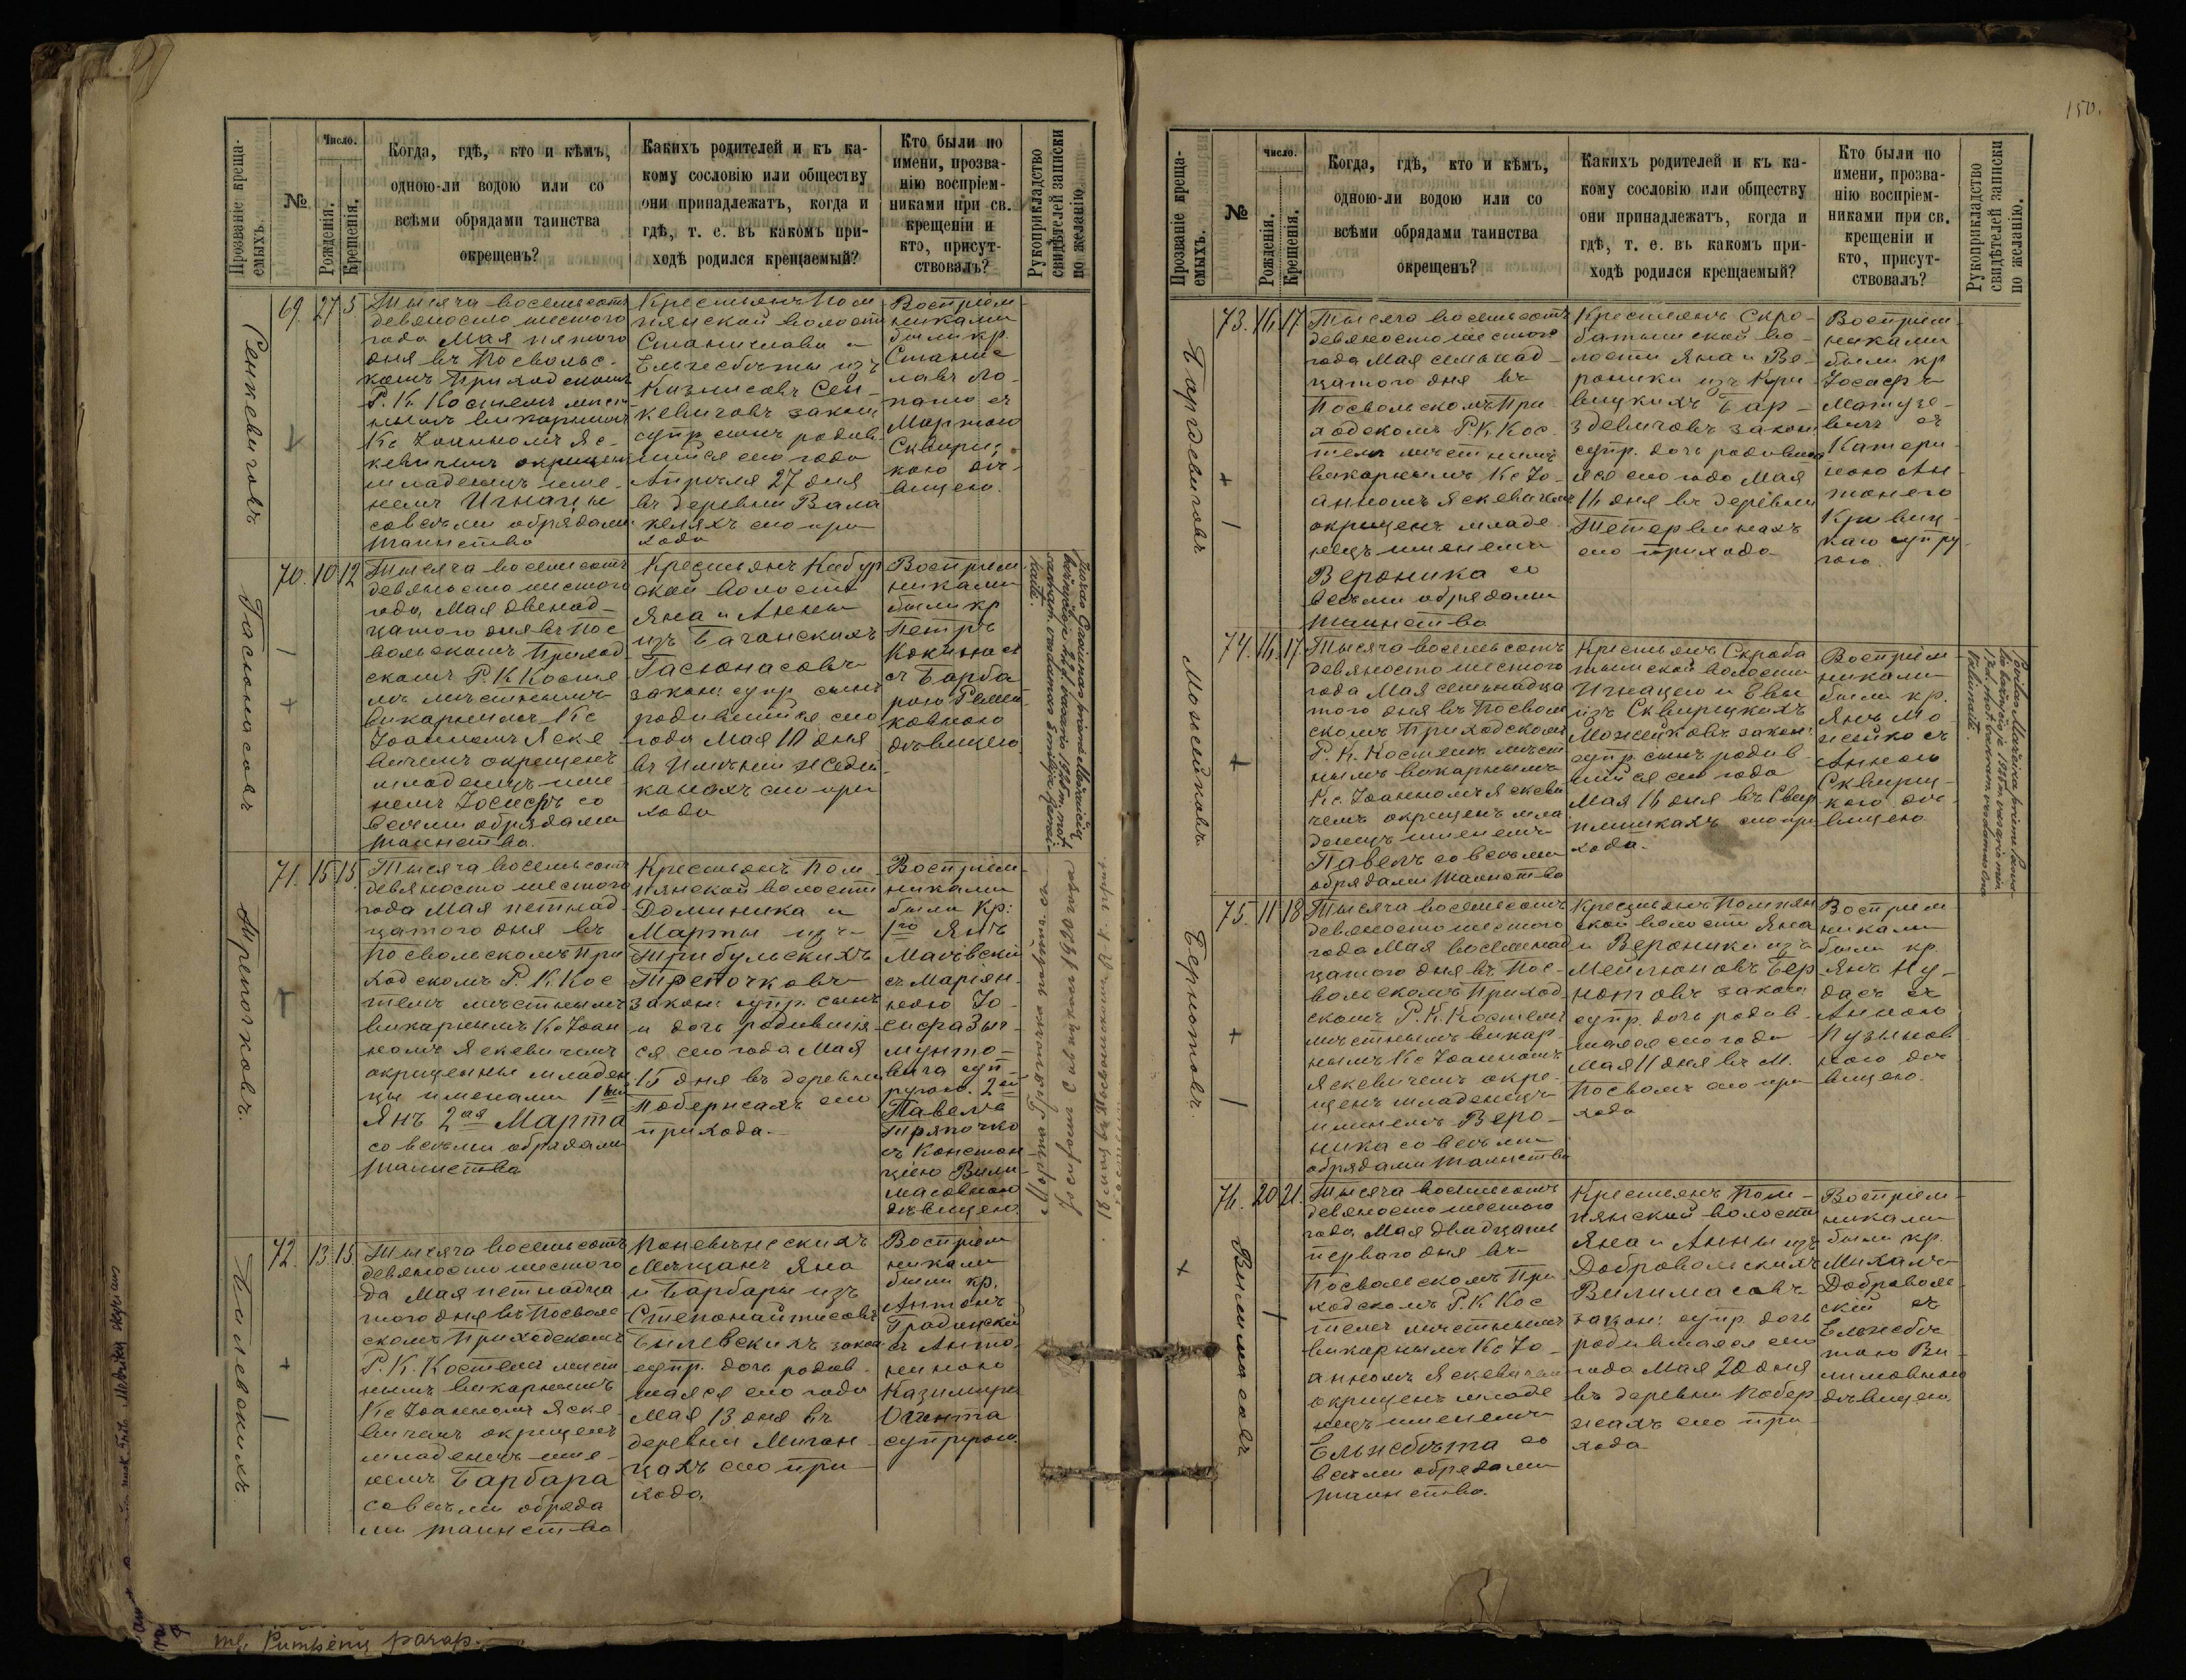 150.
Прозваніе креща-
емыхъ.
№
Число.
Рожденія.
Крещенія.
Когда, гдѣ, кто и кѣмъ,
одною-ли водою или со
всѣми обрядами таинства
окрещенъ?
Какихъ родителей и къ ка-
кому сословію или обществу
они принадлежатъ, когда и
гдѣ, т. е. въ какомъ при-
ходѣ родился крещаемый?
Кто были по
имени, прозва-
нію воспріем-
никами при св.
крещеніи и
кто, присут-
ствовалъ?
Рукоприкладство
свидѣтелей записки
по желанію
Сенкевичовъ
69. 27 5
Тысяча восемьсотъ
девяносто шестого
года Мая пятого
дня въ Посвольс-
комъ Приходскомъ
Р. К. Костелѣ мѣст
нымъ викарнымъ
Кс Іоанномъ Яс-
кевичемъ окрещенъ
младенецъ име-
немъ Игнацы
со всѣми обрядами
таинства
Крестьянъ Пом
пянской волости
Станислава и
Ельжбѣты изъ
Казисовъ Сен-
кевичовъ закон
супр сынъ родив
шійся сего года
Апрѣля 27 дня
въ деревни Вала
келяхъ сего при
хода
Воспріем
никами
были кр.
Станис
лавъ Ло-
пато съ
Мартою
Сквириц
кою дѣ-
вицею.
Гасюнасовъ
70. 10 12
Тысяча восемьсотъ
девяносто шестого
года, Мая двенад-
цатого дня въ Пос
вольскомъ Приход
скомъ Р. К Косте
лѣ мѣстнымъ
викарнымъ Кс
Іоанномъ Яске
вичемъ окрещенъ
младенецъ име
немъ Іосифъ со
всѣми обрядами
таинства.
Крестьянъ Кабур
ской волости
Яна и Анны
изъ Баганскихъ
Гасюнасовъ
закон супр. сынъ
родившійся сего
года Мая 10 дня
въ Имѣніи
канахъ сего при
хода
Воспріем
никами
были кр
Петръ
съ Барба
рою
ковною
дѣвицею
Треточковъ.
71. 15 15.
Тысяча восемьсотъ
девяносто шестого
года Мая петнад
цатого дня въ
Посвольскомъ При
ходскомъ Р. К. Кос
телѣ мѣстнымъ
викарнымъ Кс Іоан
номъ Яскевичемъ
окрещены младен
цы именами 1ый
Янъ 2ая Марта
со всѣми обрядами
таинства
Крестьянъ Пом
пянской волости
Доминика и
Марты изъ
Трибульскихъ
Треточковъ
закон супр. сынъ
и дочь родившія-
ся сего года Мая
15 дня въ деревни
Побержахъ сего
прихода.
Воспріем-
никами
были Кр:
1го Янъ
съ Маріян-
ною Іо-
сифа Зыг-
мунто-
вича суп-
ругою. 2ой
Павелъ
Тряпочко
съ Констан
ціею Вили-
масовною
дѣвицею
Билевскихъ.
72. 13. 15.
Тысяча восемьсотъ
девяносто шестого го
да Мая петнадца
того дня въ Посволь
скомъ Приходскомъ
Р. К. Костелѣ мѣст
нымъ викарнымъ
Кс Іоанномъ Яске-
вичемъ окрещенъ
младенецъ име-
немъ Барбара
со всѣми обряда
ми таинства
Поневѣжскихъ
Мѣщанъ Яна
и Барбары изъ
Билевскихъ закон
супр. дочь родив-
шаяся сего года
Мая 13 дня въ
деревни Миган-
цахъ сего при
хода.
Воспріем
никами
были кр.
Антонъ
съ Анто-
ниною
Казимира
Огинта
супругою.
mg. Pumpėnų parap.
Прозваніе креща-
емыхъ.
№
Число.
Рожденія.
Крещенія.
Когда, гдѣ, кто и кѣмъ,
одною-ли водою или со
всѣми обрядами таинства
окрещенъ?
Какихъ родителей и къ ка-
кому сословію или обществу
они принадлежатъ, когда и
гдѣ, т. е. въ какомъ при-
ходѣ родился крещаемый?
Кто были по
имени, прозва-
нію воспріем-
никами при св.
крещеніи и
кто, присут-
ствовалъ?
Рукоприкладство
свидѣтелей записки
по желанію.
73. 16 17
Тысяча восемьсотъ
девяносто шестого
года Мая семьнад-
цатого дня въ
Посвольскомъ При
ходскомъ Р. К. Кос-
телѣ мѣстнымъ
викарнымъ Кс Іо-
анномъ Яскевичемъ
окрещенъ младе
нецъ именемъ
Вероника со
всѣми обрядами
таинства
Крестьянъ Скро-
батышской во-
лости Яна и Ве-
роники изъ Кри
вицкихъ Бар-
здевичовъ закон
супр. дочь родивша
яся сего года Мая
16 дня въ деревни
Тетервинахъ
сего прихода
Воспріем-
никами
были кр
Іосафъ
Матузе-
вичъ съ
Катери-
ною Ан-
тонего
Кривиц-
каго супру
гою.
Можейковъ
74. 16. 17.
Тысяча восемьсотъ
девяносто шестого
года Мая семьнадца
того дня въ Посволь
скомъ Приходскомъ
Р. К. Костелѣ мѣст
нымъ викарнымъ
Кс. Іоанномъ Яскеви
чемъ окрещенъ мла
денецъ именемъ
Павелъ со всѣми
обрядами таинства
Крестьянъ Скроба
тышской волости
Игнацего и Евы
изъ Сквирицкихъ
Можейковъ закон:
супр. сынъ родив-
шійся сего года
Мая 16 дня въ Свир
плишкахъ сего при
хода.
Воспріем
никами
были кр.
Янъ Мо-
жейко съ
Анною
Сквириц-
кою дѣ-
вицею
Бернотовъ.
75. 11 18
Тысяча восемьсотъ
девяносто шестого
года Мая восемнад
цатого дня въ Пос-
вольскомъ Приход
скомъ Р. К. Костелѣ
мѣстнымъ викар-
нымъ Кс Іоанномъ
Яскевичемъ окре-
щенъ младенецъ
именемъ Веро-
ника со всѣми
обрядами таинства
Крестьянъ Помпян
ской волости Яна
и Вероники изъ
Мейлюновъ Бер
нотовъ закон
супр. дочь родив-
шаяся сего года
Мая 11 дня въ М.
Посволѣ сего при
хода
Воспріем
никами
были кр.
Янъ Ну-
дасъ съ
Анною
Пузынов
ною дѣ
вицею.
Вилимасовъ
76. 20 21.
Тысяча восемьсотъ
девяносто шестого
года, Мая двадцать
перваго дня въ
Посвольскомъ При
ходскомъ Р. К Кос
телѣ мѣстнымъ
викарнымъ Кс Іо-
анномъ Яскевичемъ
окрещенъ младе
нецъ именемъ
Ельжбѣта со
всѣми обрядами
таинства.
Крестьянъ Пом-
пянской волости
Яна и Анны изъ
Добровольскихъ
Вилимасовъ
закон: супр. дочь
родившаяся сего
года Мая 20 дня
въ деревни Побер
жахъ сего при
хода
Воспріем-
никами
были кр.
Михалъ
Доброволь
скій съ
Ельжбѣ
тою Ви-
лимовною
дѣвицею.